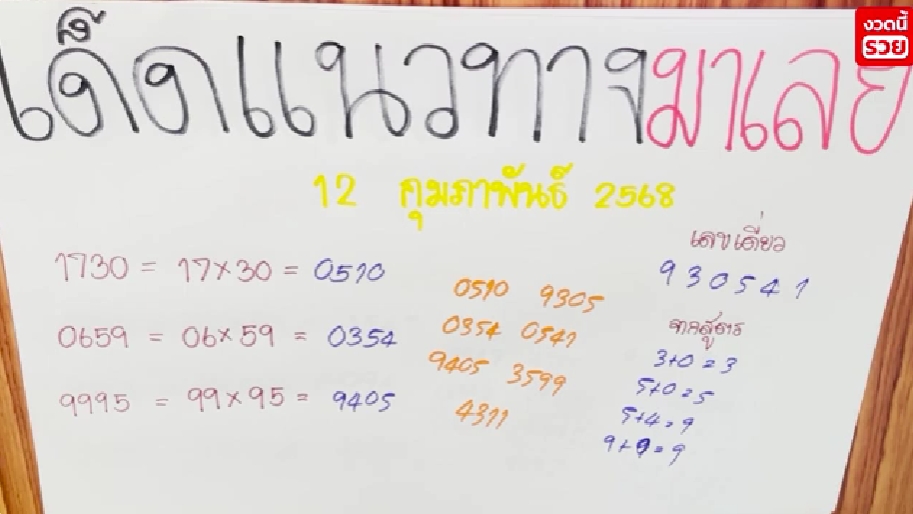 งวดนี้
รวย
เด็ดแนวทางมาเลย
12 กุมภาพันธ์ 2568
เลขเดี่ยว
930541
1730 = 17×30 = 0510
0510 9305
จากสูตร
0659 = 06×59 = 0354
0354 0541
3+0=3
9405 3599
5+0=5
9995 = 99×95 = 9405
4311
5+4=9
9+0=9